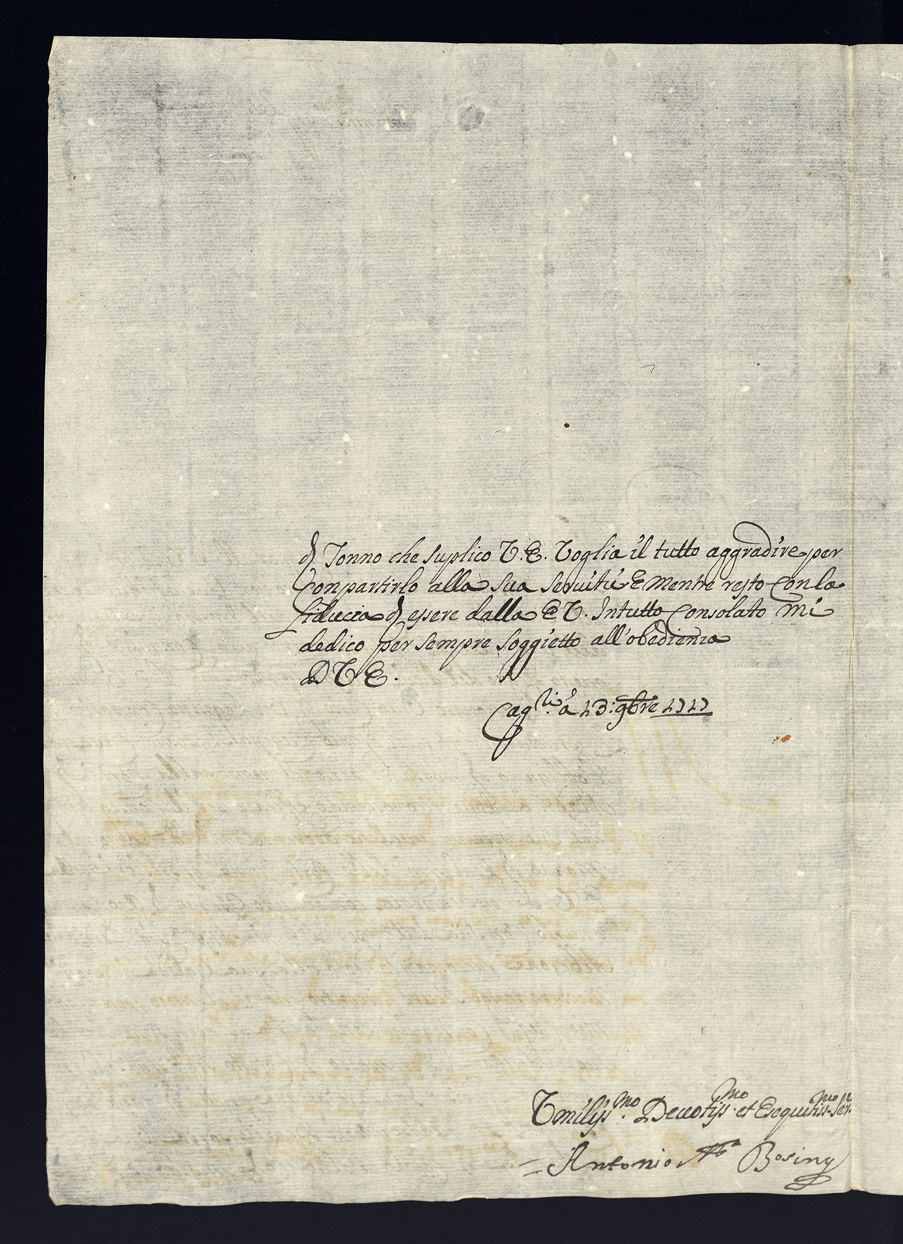 di Tonno che suplico V.E. Voglia il tutto aggradire per
Conpartirlo alla Sua servitù E mentre resto Con la
fiducia di essere dalla E V. Intutto Consolato mi
dedico per sempre soggietto all'obedienza
D V E.
Cagli.ri a 23: 9bre
Vmiliss.mo Deuotiss.mo et Esequtiss.mo Ser.
= Antonio